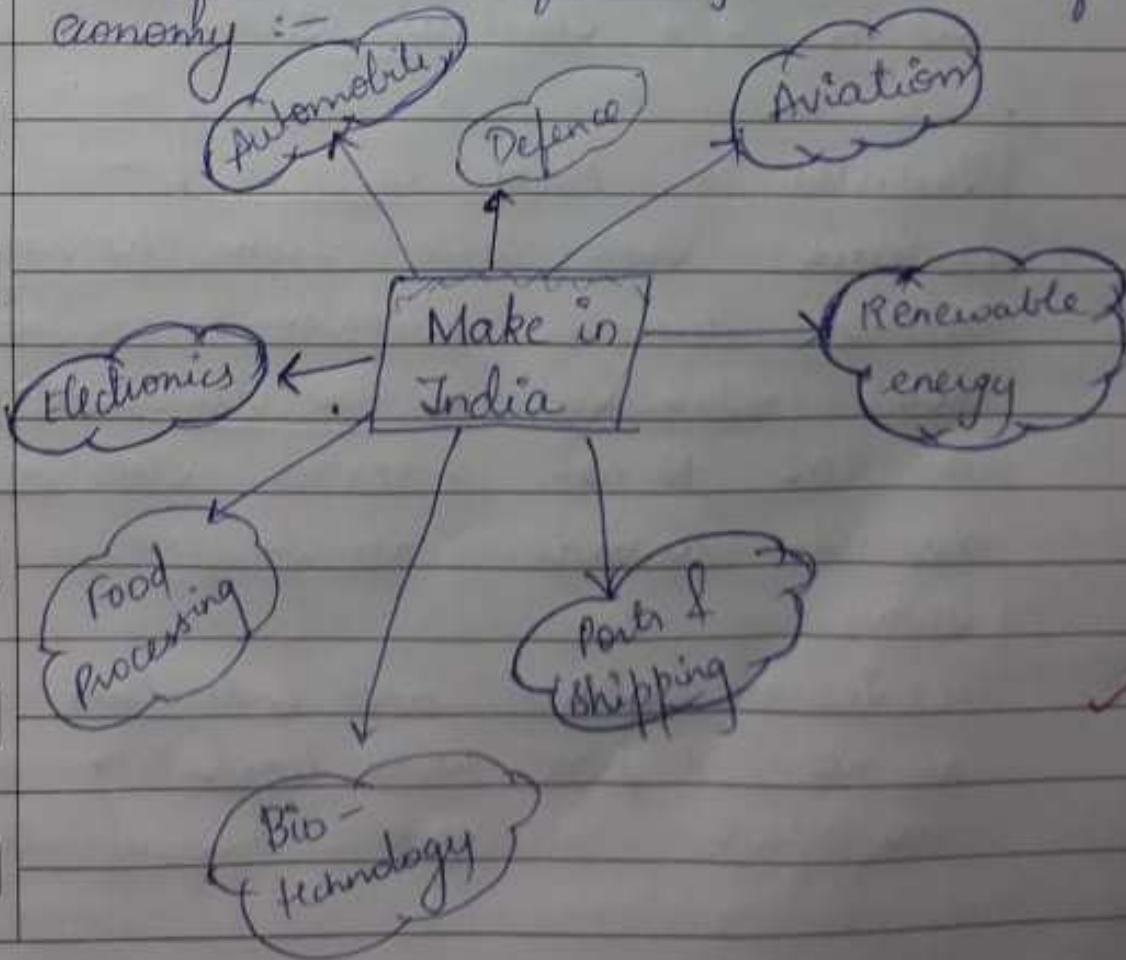 economy :-
Automobile
Defence
Aviation
Make in
India
Renewable
energy
Electronics
Food
Processing
Ports &
shipping
Bio-
technology